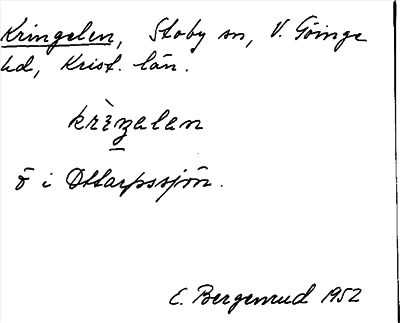 Kringelen, Stoby sn, V. Göinge
hd, Krist. län.
krìŋelen
ö i Ottarpssjön.
E. Bergenrud 1952